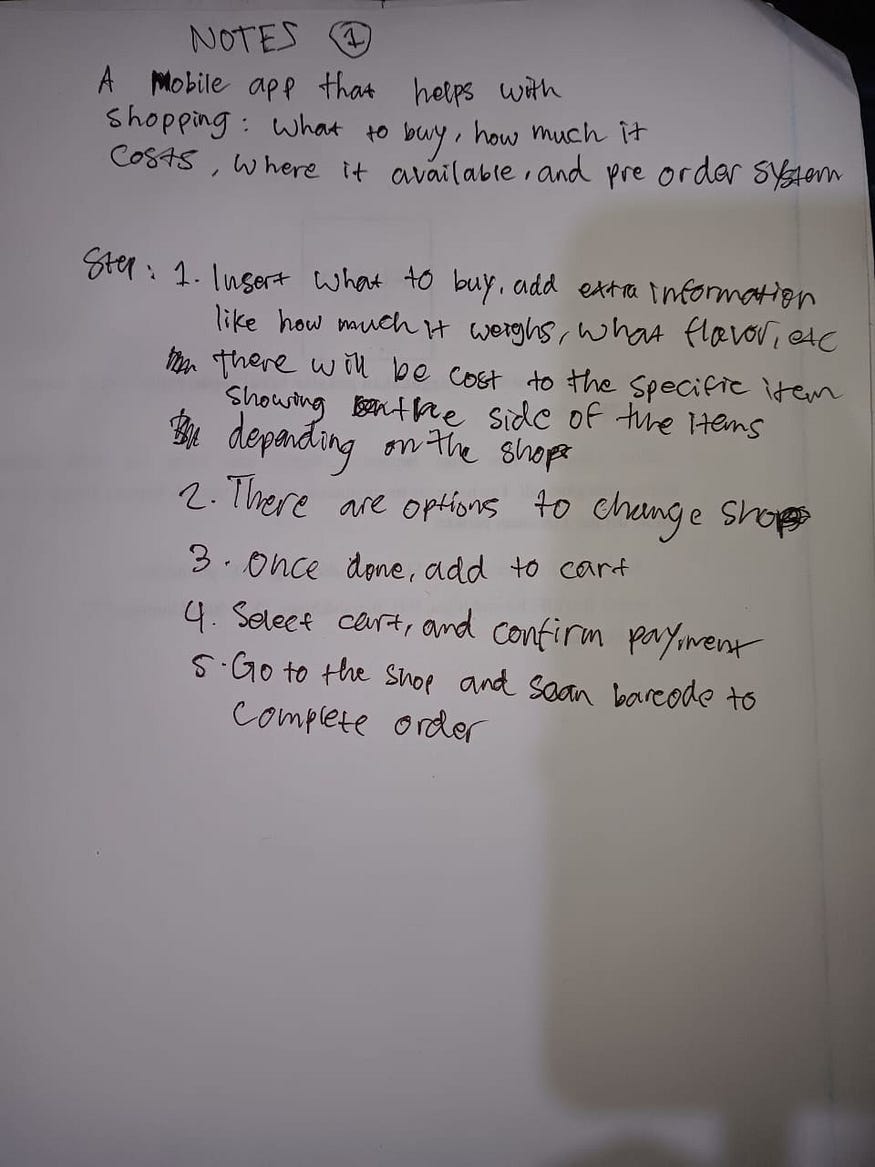 NOTES 1
A Mobile app that helps with
shopping: what to buy, how much it
costs, where it available, and pre order system
Step: 1. Insert what to buy, add extra information
like how much it weighs, what flavor, etc
there will be cost to the specific item
showing on the side of the items
depending on the shop
2. There are options to change shop
3. Once done, add to cart
4. Select cart, and confirm payment
5. Go to the shop and scan barcode to
complete order